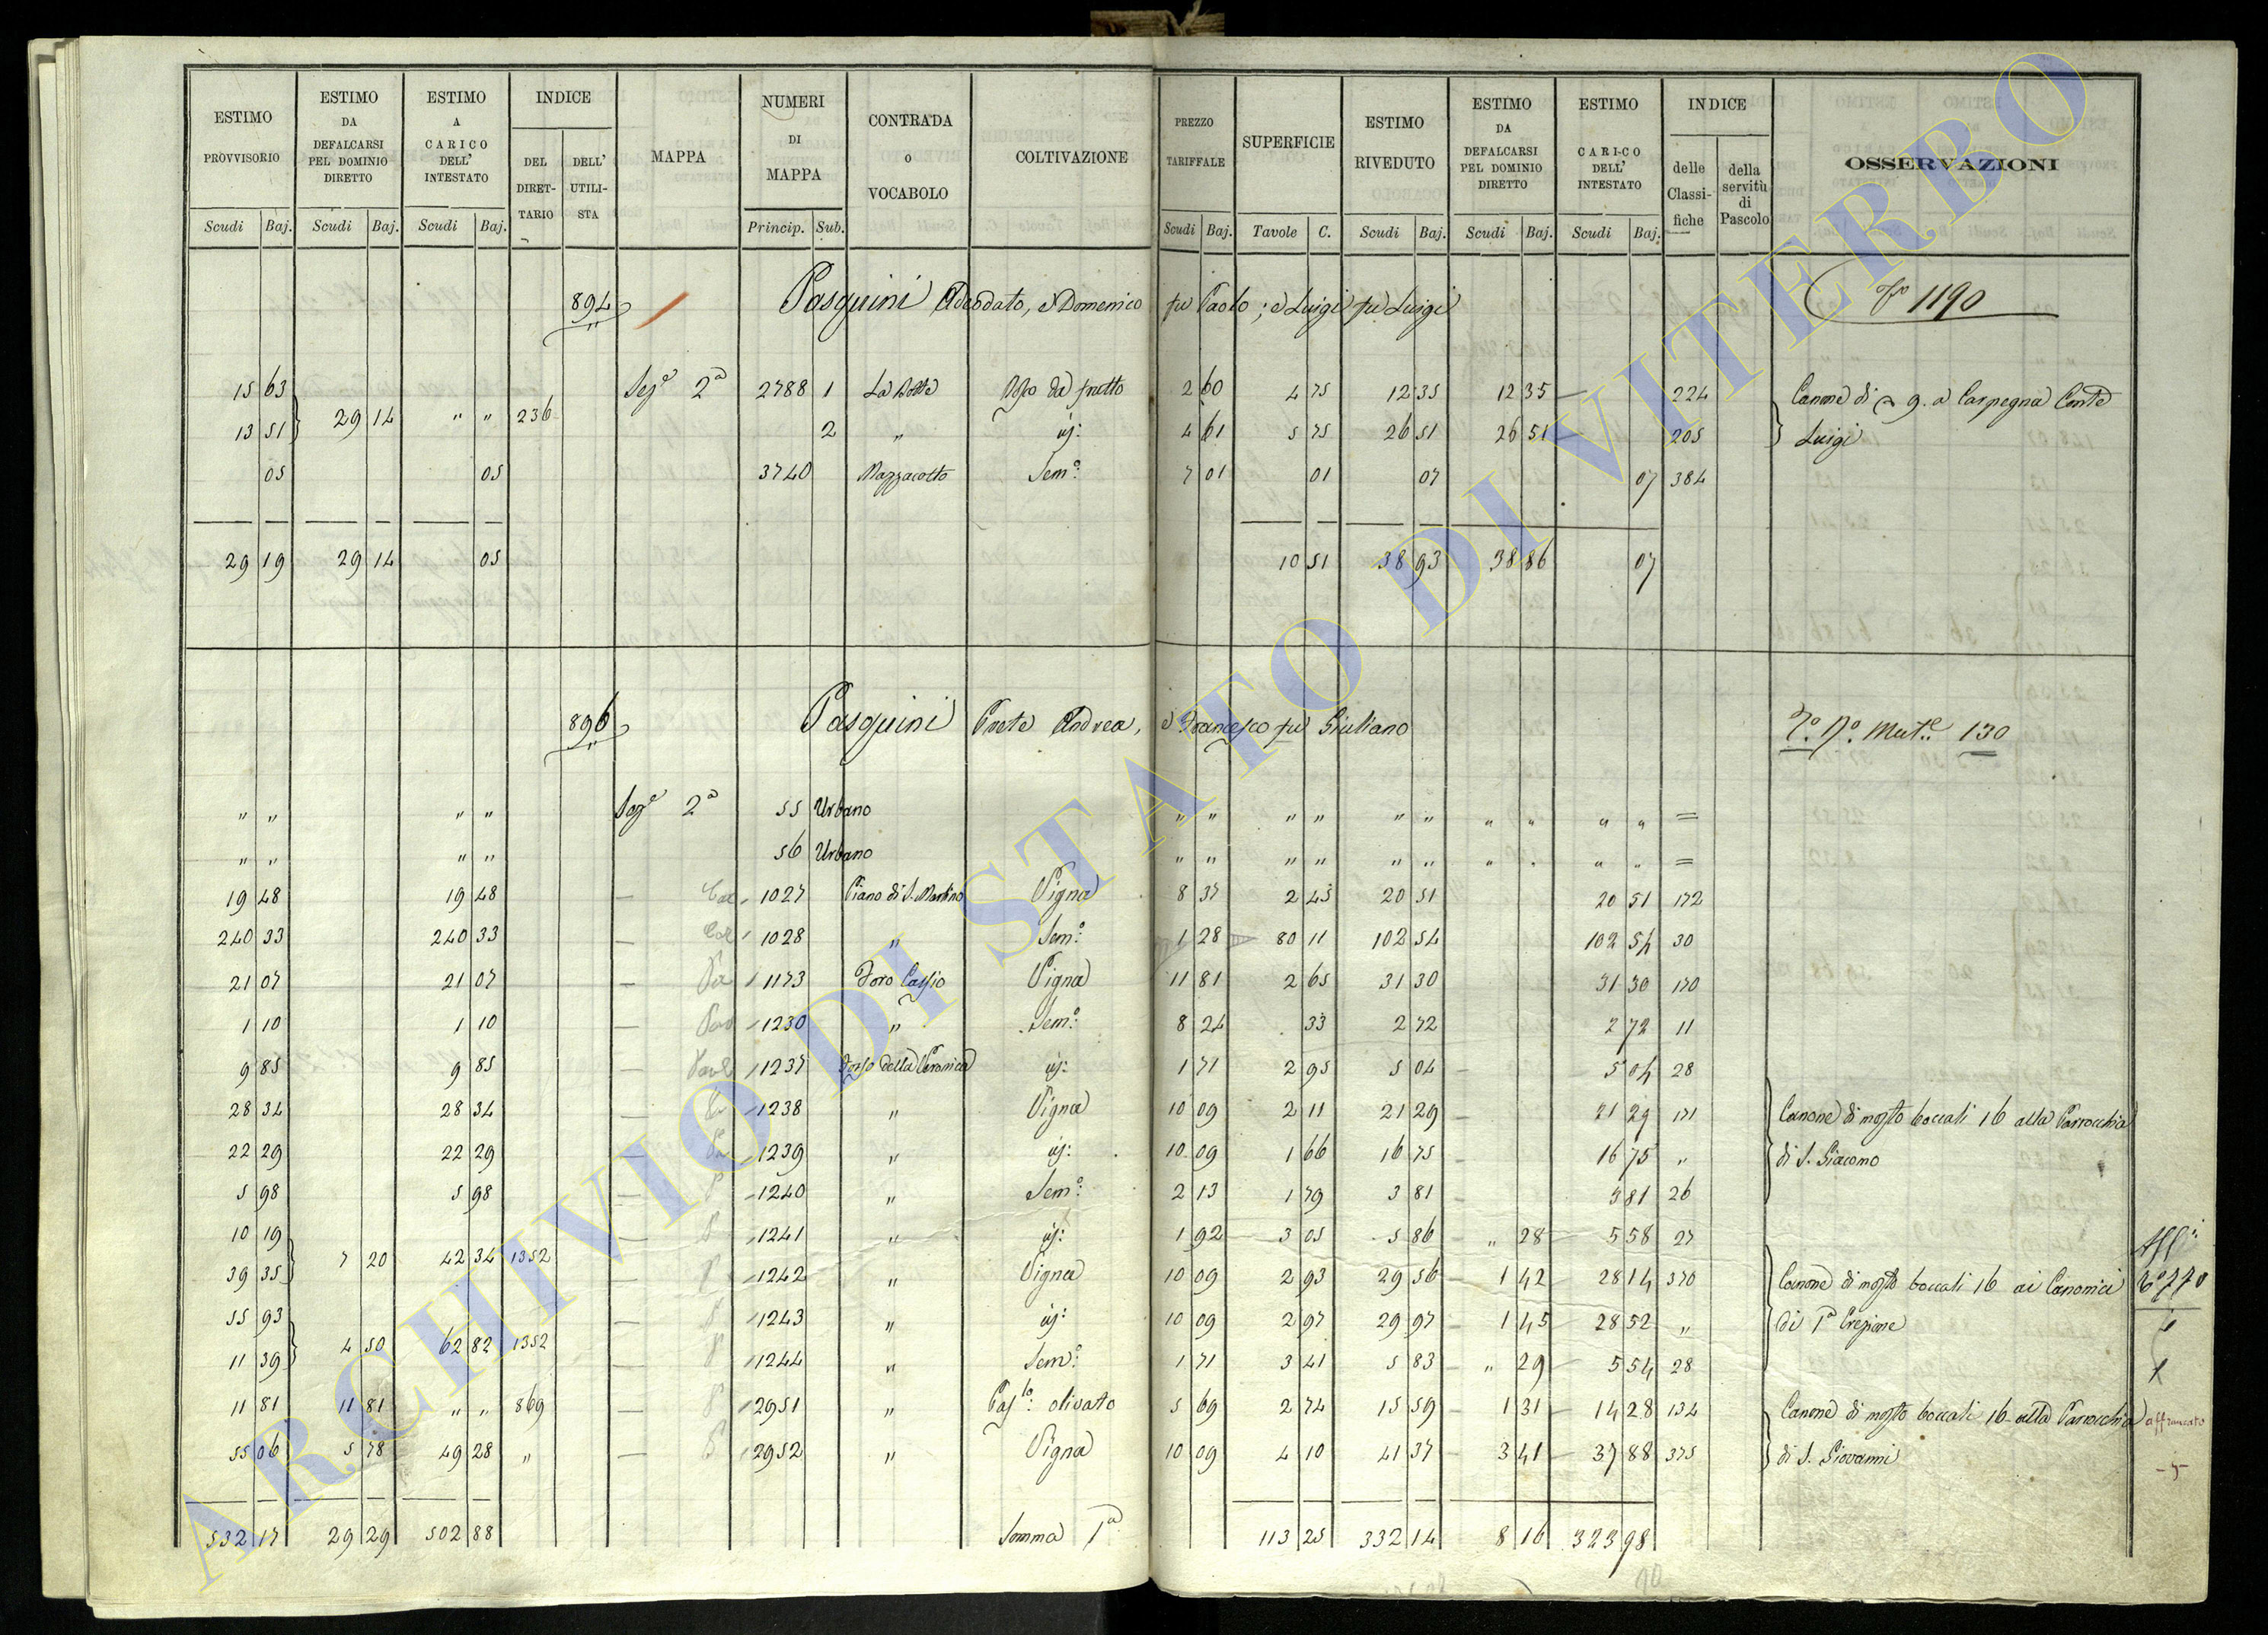 ESTIMO PROVVISORIO | ESTIMO DA DEFALCARSI PEL DOMINIO DIRETTO | ESTIMO A CARICO DELL' INTESTATO | INDICE DEL DIRETTARIO | DELL' UTILISTA | MAPPA | NUMERI DI MAPPA | CONTRADA O VOCABOLO | COLTIVAZIONE | PREZZO TARIFFALE | SUPERFICIE | ESTIMO RIVEDUTO | ESTIMO DA DEFALCARSI PEL DOMINIO DIRETTO | ESTIMO A CARICO DELL' INTESTATO | INDICE delle Classifiche | della servitù di Pascolo | OSSERVAZIONI
Scudi Baj. | Scudi Baj. | Scudi Baj. | Princip. Sub. | Scudi Baj. | Tavole C. | Scudi Baj. | Scudi Baj. | Scudi Baj.
894 Pasquini Adeodato, e Domenico fu Paolo; e Luigi fu Luigi 1190
15 63 Sez.e 2a 2788 1 La Botte Bosco da frutto 2 60 4 75 12 35 12 35 224 Canone di 9. a Carpegna Conte
13 51 29 14 " " 236 2 " id: 4 61 5 75 26 51 26 51 205 Luigi
05 05 3740 Mazzacotto Sem.o 7 01 01 07 07 384
29 19 29 14 05 10 51 38 93 38 86 07
896 Pasquini Prete Andrea, e Francesco fu Giuliano 130
" " " " Sez.e 2a 55 Urbano " " " " " " " " " " =
" " " " 56 Urbano " " " " " " " " " " =
19 48 19 48 1027 Piano di S. Martino Vigna 8 37 2 45 20 51 20 51 172
240 33 240 33 1028 " Sem.o 1 28 80 11 102 54 102 54 30
21 07 21 07 1173 Foro Cassio Vigna 11 81 2 65 31 30 31 30 170
1 10 1 10 1230 " Sem.o 8 24 33 2 72 2 72 11
9 85 9 85 1237 Fosso della Veronica id: 1 71 2 95 5 04 5 04 28
28 34 28 34 1238 " Vigna 10 09 2 11 21 29 21 29 171 Canone di mosto boccali 16 alla Parrocchia
22 29 22 29 1239 " id: 10 09 1 66 16 75 16 75 " di S. Giacomo
5 98 5 98 1240 " Sem.o 2 13 1 79 3 81 3 81 26
10 19 1241 " id: 1 92 3 05 5 86 " 28 5 58 27
7 20 42 34 1352
39 35 1242 " Vigna 10 09 2 93 29 56 1 42 28 14 370 Canone di mosto boccali 16 ai Canonici
55 93 1243 " id: 10 09 2 97 29 97 1 45 28 52 "
4 50 62 82 1352
11 39 1244 " Sem.o 1 71 3 41 5 83 " 29 5 54 28
11 81 11 81 " " 869 2951 " Pas.lo olivato 5 69 2 74 15 59 1 31 14 28 134 Canone di mosto boccali 16 alla Parrocchia affrancato
55 06 5 78 49 28 " 2952 " Vigna 10 09 4 10 41 37 3 41 37 88 375 di S. Giovanni
532 17 29 29 502 88 Somma 1a 113 25 332 14 8 16 323 98
ARCHIVIO DI STATO DI VITERBO